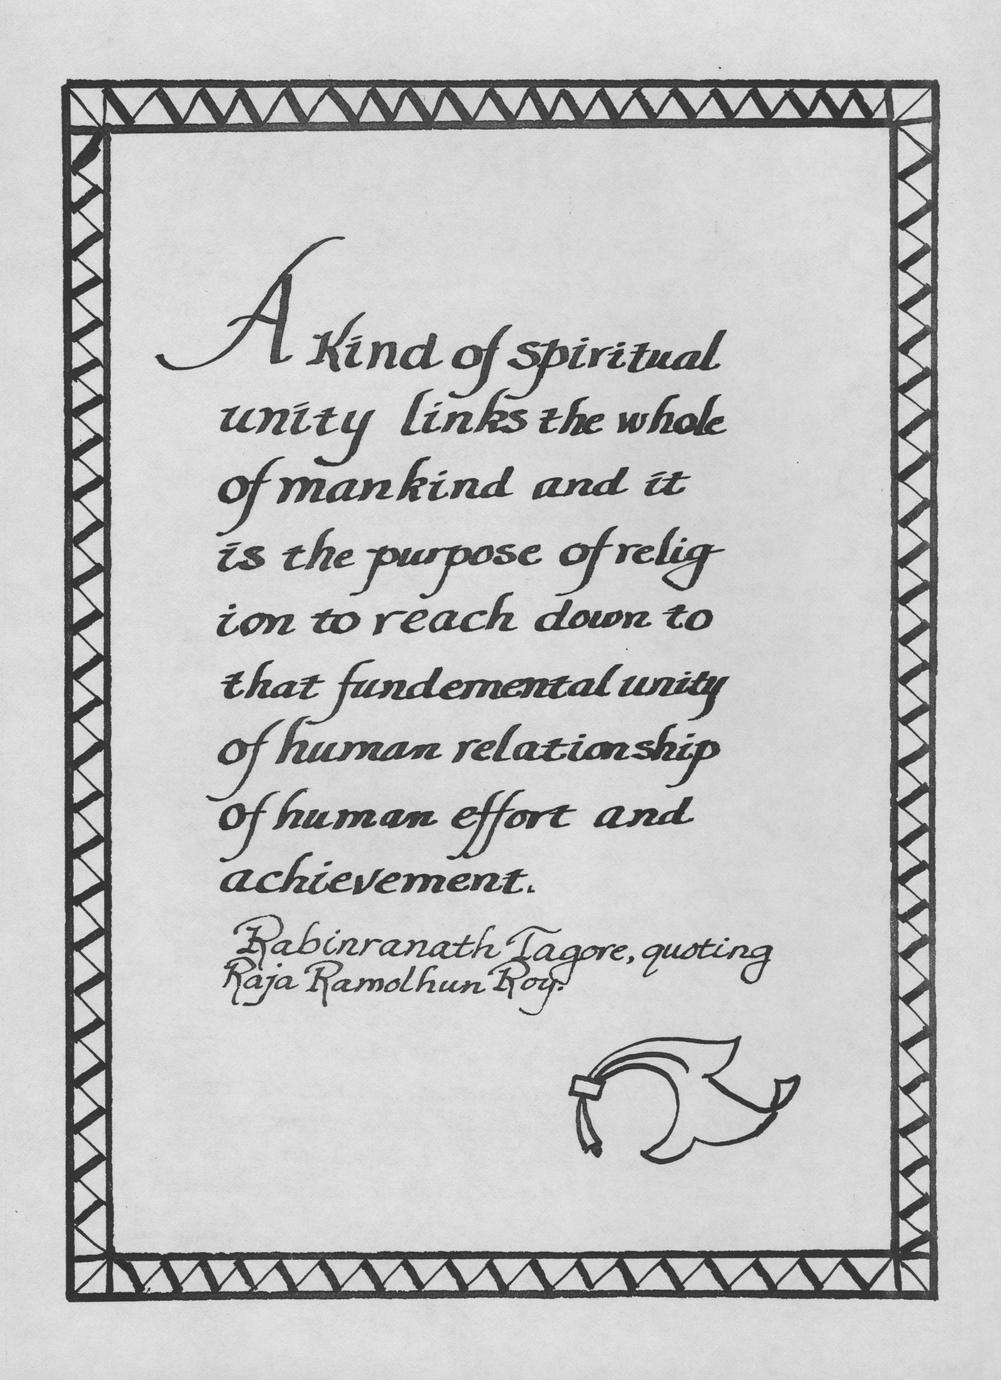 A Kind of spiritual
unity links the whole
of mankind and it
is the purpose of relig
ion to reach down to
that fundemental unity
of human relationship
of human effort and
achievement.
Rabinranath Tagore, quoting
Raja Ramolhun Roy.